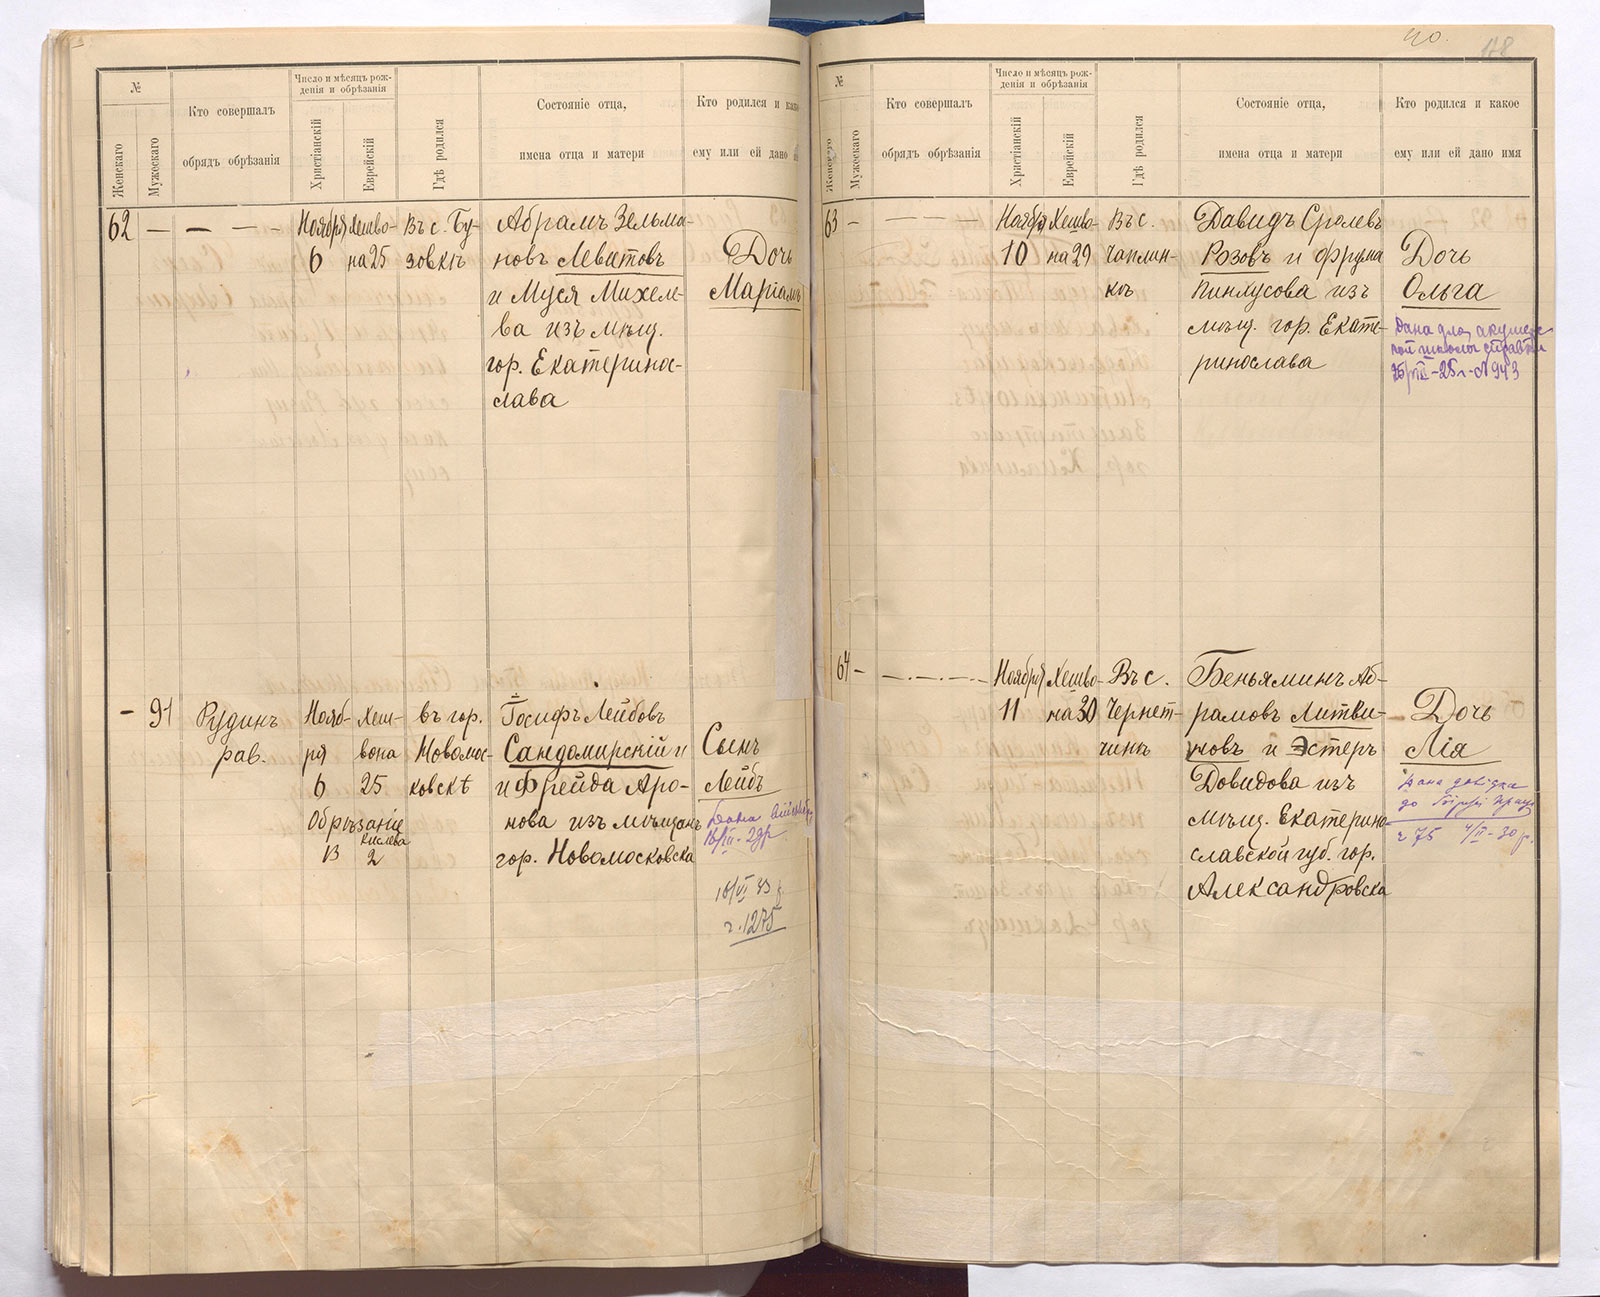 №
Женскаго
Мужескаго
Кто совершалъ
обрядъ обрѣзанія
Число и мѣсяцъ рож-
денія и обрѣзанія
Христіанскій
Еврейскій
Гдѣ родился
Состояніе отца,
имена отца и матери
Кто родился и како
ему или ей дано
62 — — — —
Ноября
6
Хешво-
на 25
Въ с. Бу-
зовкѣ
Абрамъ Зельма-
новъ Левитовъ
и Муся Михеле-
ва изъ мѣщ.
гор. Екатерино-
слава
Дочь
Маріамъ
— 91
Рудинъ
рав.
Нояб-
ря
6
Хеш-
вона
25
Обрѣзаніе
Кислева
13 2
въ гор.
Новомос-
ковскѣ
Іосифъ Лейбовъ
Сандомирскій и
и Фрейда Аро-
нова изъ мѣщанъ
гор. Новомосковска
Сынъ
Лейбъ
Дана
16/VI 33 р
ч. 1275
40.
118
№
Женскаго
Мужескаго
Кто совершалъ
обрядъ обрѣзанія
Число и мѣсяцъ рож-
денія и обрѣзанія
Христіанскій
Еврейскій
Гдѣ родился
Состояніе отца,
имена отца и матери
Кто родился и какое
ему или ей дано имя
63 — — — —
Ноября
10
Хешво-
на 29
Въ с.
Чаплин-
кѣ
Давидъ Сролевъ
Розовъ и Фрума
Пинхусова изъ
мѣщ. гор. Екате-
ринослава
Дочь
Ольга
Дана для акушерс
кой школы справка
25/VIII-25 г. №943
64 — — · — · —
Ноября
11
Хешво-
на 30
Въ с.
Чернет-
чинѣ
Беньяминъ Аб-
рамовъ Литви-
новъ и Эстеръ
Довидова изъ
мѣщ. Екатерино-
славской губ. гор.
Александровска
Дочь
Лія
Дана довідка
до Біржі праці
ч 75 4/II-30 р.